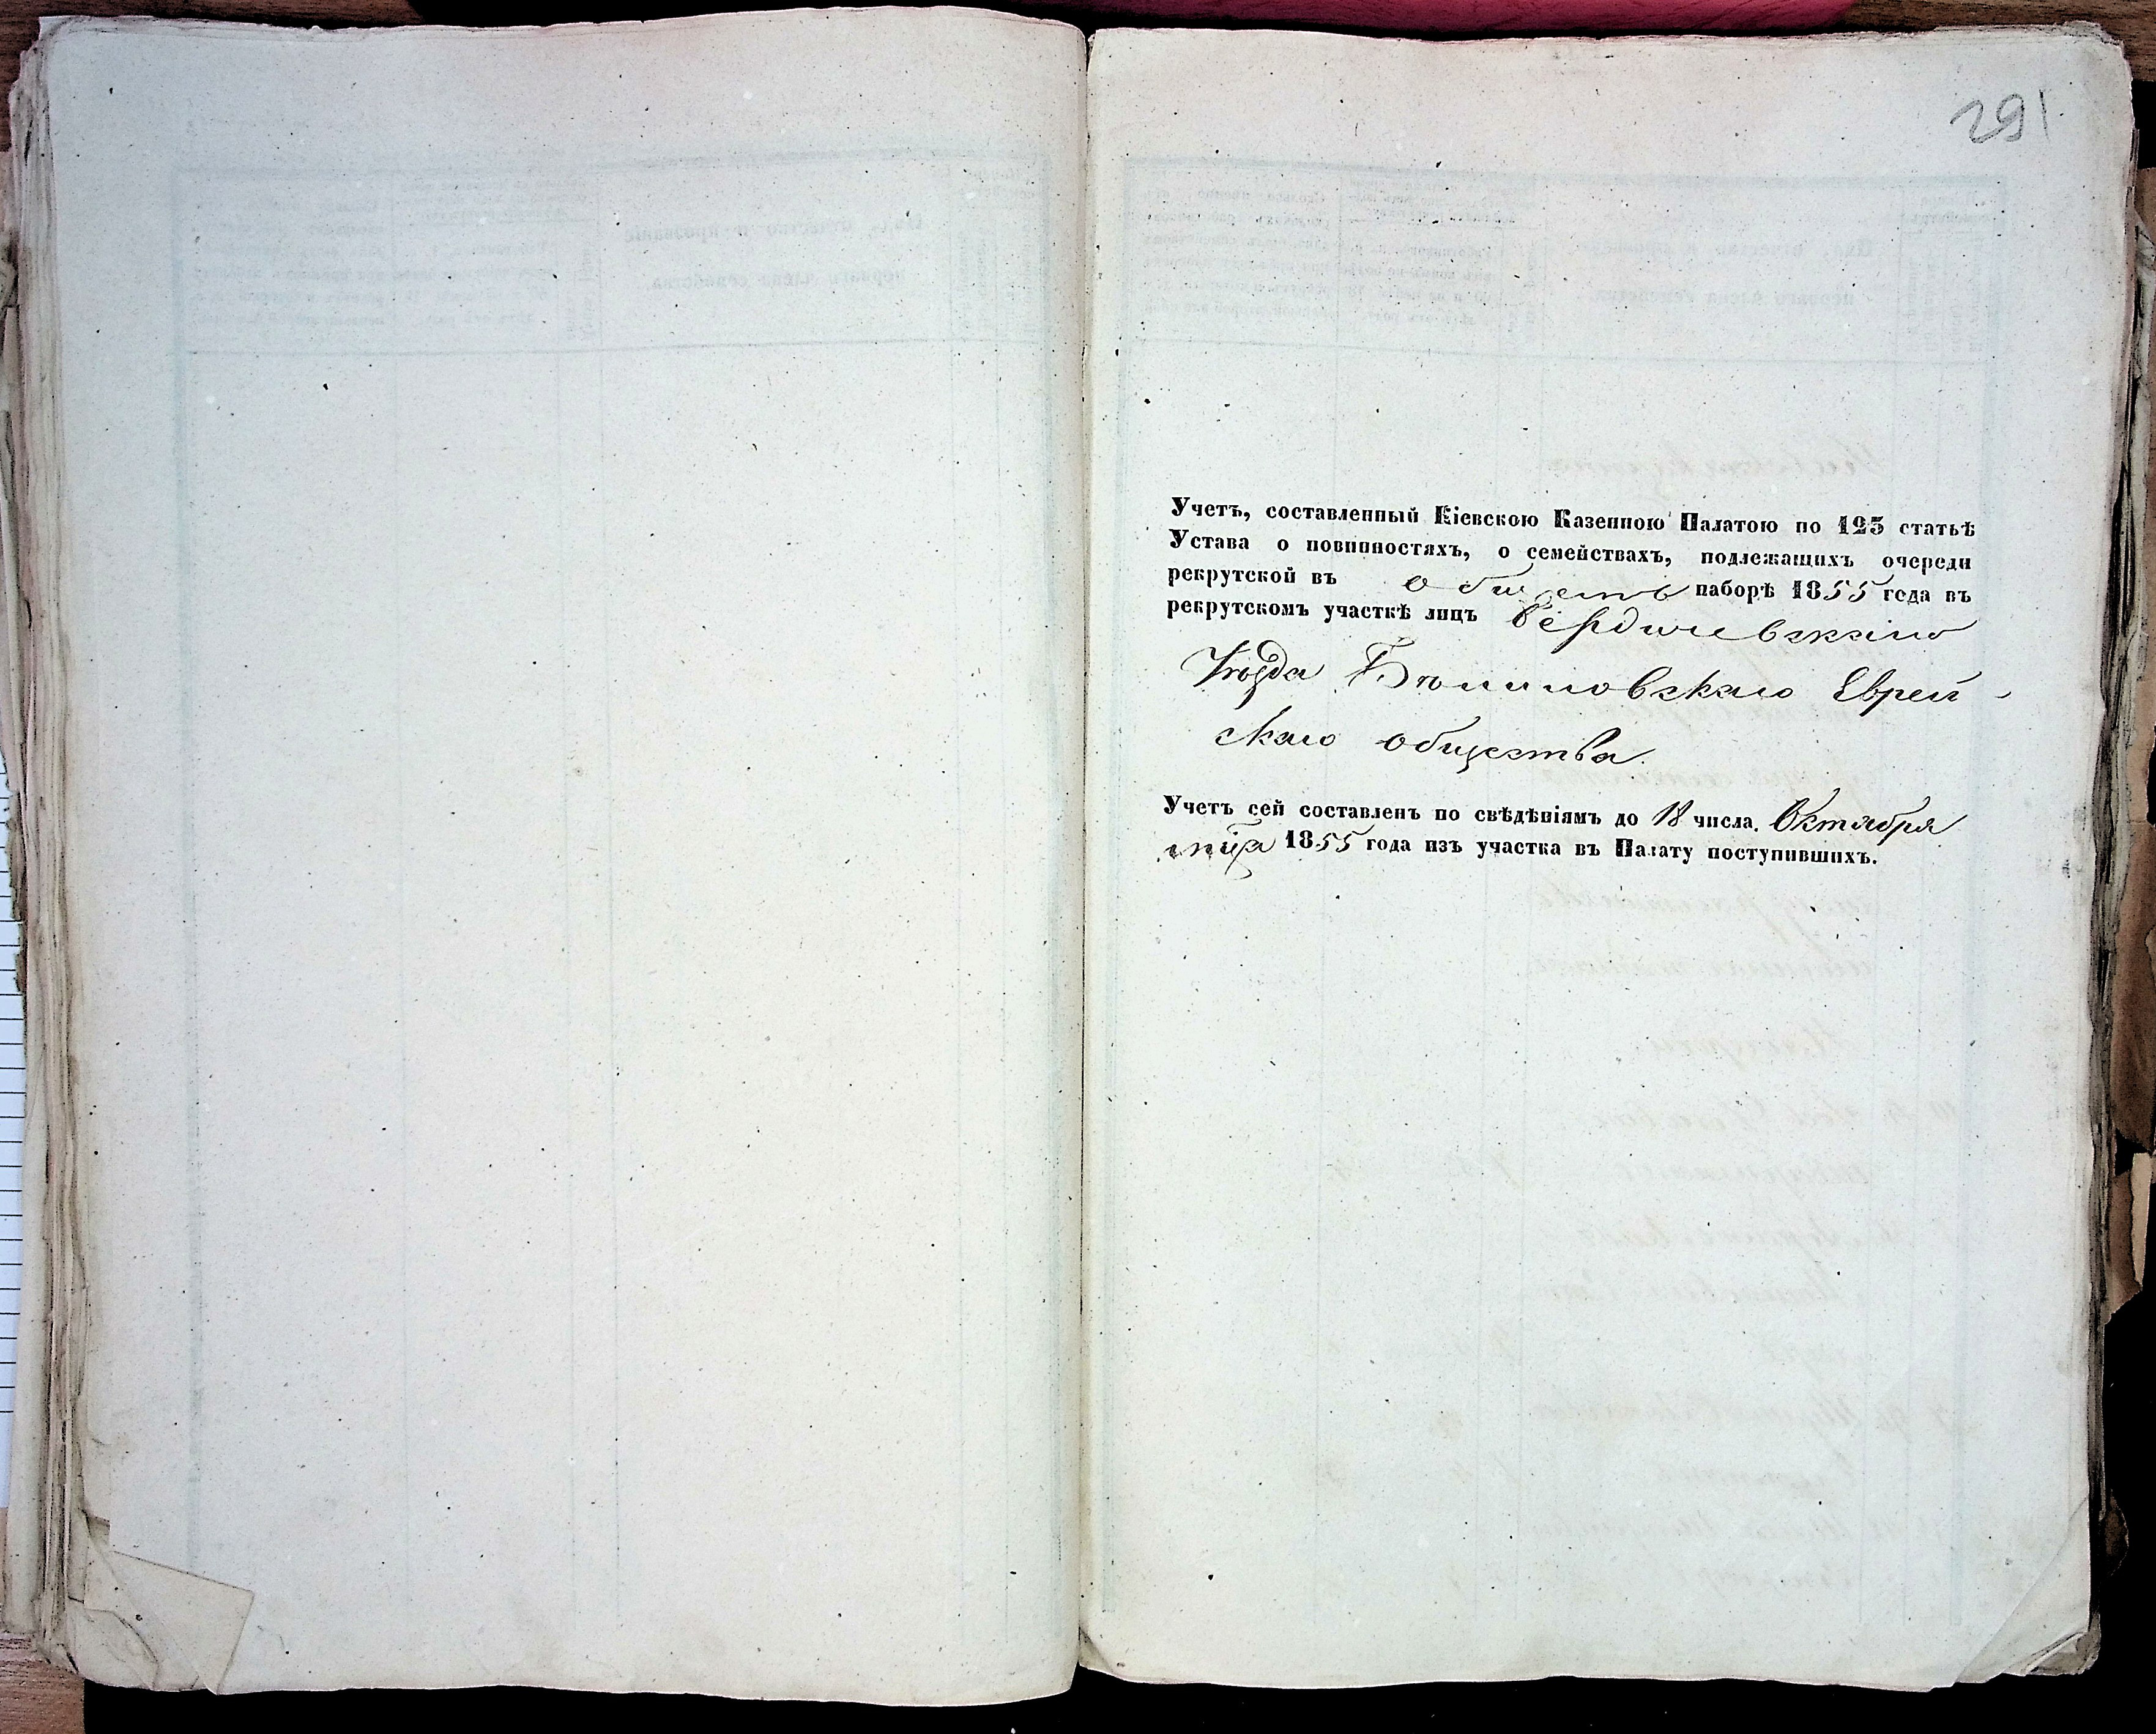 291
Учетъ, составленный Кіевскою Казенною Палатою по 125 статьѣ
Устава о повинностяхъ, о семействахъ, подлежащихъ очереди
рекрутской въ общемъ наборѣ 1855 года въ
рекрутскомъ участкѣ лицъ Бердичевскаго
Уѣзда Бѣлиловскаго Еврей-
скаго общества.
Учетъ сей составленъ по свѣдѣніямъ до 18 числа Октября
1855 года изъ участка въ Палату поступившихъ.